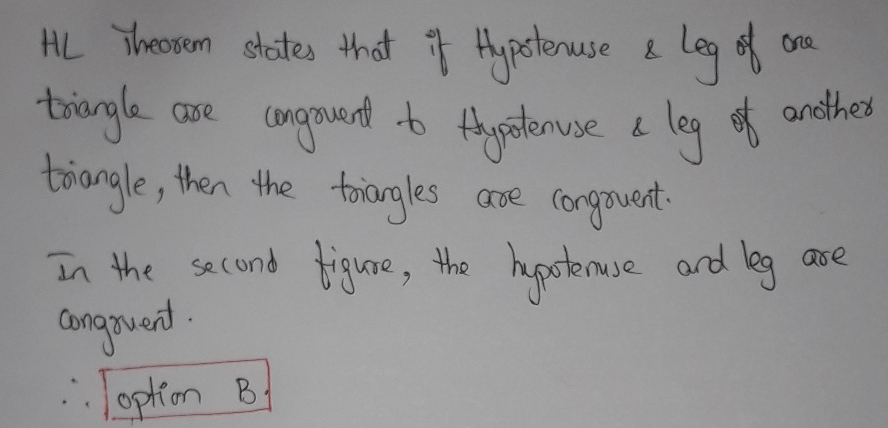 HL Theorem states that if Hypotenuse & Leg of one
triangle are congruent to Hypotenuse & leg of another
triangle, then the triangles are congruent.
In the second figure, the hypotenuse and leg are
congruent.
∴ option B.